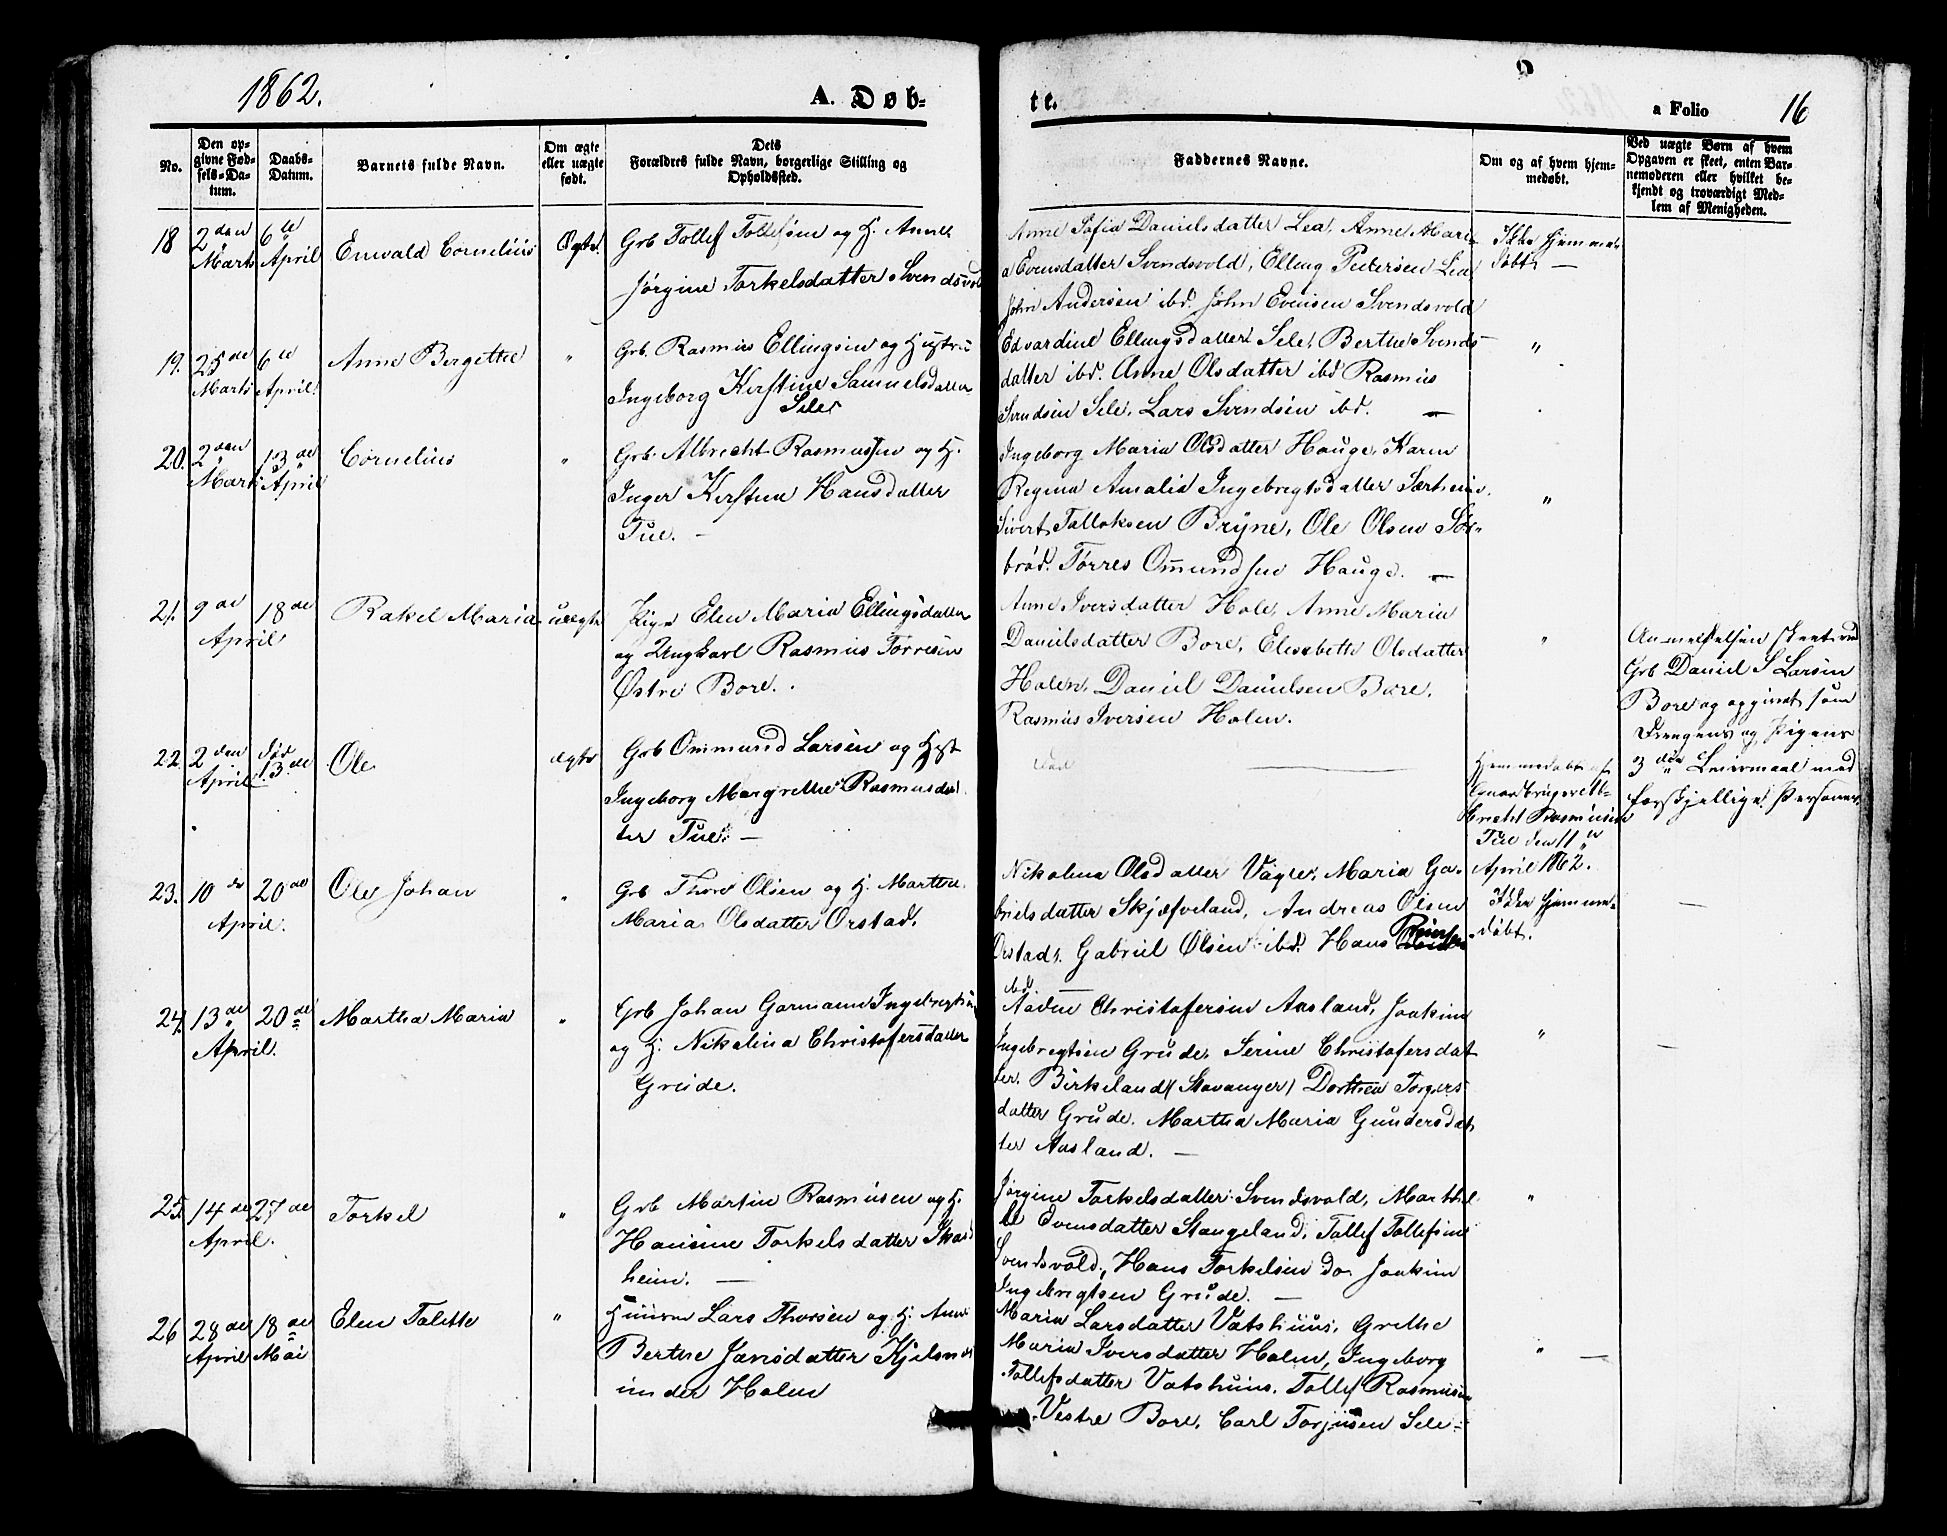 1862.
A. Døb-
te.
a Folio
16
No.
Den op-
givne Fød-
sels-Da-
tum.
Daabs-
Datum.
Barnets fulde Navn.
Om ægte
eller uægte
født.
Dets
Forældres fulde Navn, borgerlige Stilling og
Opholdssted.
Faddernes Navne.
Om og af hvem hjem-
medøbt.
Ved uægte Børn af hvem
Opgaven er skeet, enten Bar-
nemoderen eller hvilket be-
kjendt og troværdigt Med-
lem af Menigheden.
18
2den
Marts
6te
April
Enevald Cornelius
Ægte.
Grb Tollef Tollefsen og H. Anne
Jørgine Torkelsdatter Svendsvold
Anne Sofia Danielsdatter Lea, Anne Mari-
a Evensdatter Svendsvold, Elling Petersen Lea
John Andersen ibd. John Evensen Svendsvold
Ikke hjemme-
døbt. —
19.
25de
Marts
6te
April.
Anne Bergethe
"
Grb. Rasmus Ellingsen og Hustru
Ingeborg Kerstine Samuelsdatter
Sele
Edvardine Ellingsdatter Sele, Berthe Svends-
datter ibd. Anne Olsdatter ibd Rasmus
Svendsen Sele, Lars Svendsen ibd. —
"
20.
2den
Marts
13de
April
Cornelius
"
Grb. Albrecht Rasmussen og H.
Inger Kerstina Hansdatter
Tue. —
Ingeborg Maria Olsdatter Hauge, Karen
Regina Amalia Ingebregtsdatter Særheim,
Sivert Tollaksen Bryne, Ole Olsen Sør-
brød. Tørres Omundsen Hauge. —
"
21.
9de
April
18de
Rakel Maria
uægte
Pige Elen Maria Ellingsdatter
og Ungkarl Rasmus Torresen
Østre Bore.
Anne Iversdatter Hole, Anne Maria
Danielsdatter Bore, Elisabeth Olsdatter
Holen, Daniel Danielsen Bore,
Rasmus Iversen Holen.
"
Anmeldelsen skeet ved
Grb Daniel S Larsen
Bore og opgivet som
Drengens og Pigens
3die Leiermaal med
forskjellige Personer.
22.
2den
April
død
13de
Ole
ægte
Grb Ommund Larsen og Hust
Ingeborg Margrethe Rasmusdat
ter Tue. —
død —
Hjemmedøbt af
Gaardbruger Al-
brecht Rasmussen
Tue den 11te
April 1862.
23.
10de
April.
20de
Ole Johan
"
Grb Thore Olsen og H. Marthe
Maria Olsdatter Orstad.
Nikolina Olsdatter Vagle, Maria Ga-
brielsdatter Skjæfveland, Andreas Olsen
Orstad, Gabriel Olsen ibd. Hans
ibd —
Ikke hjemme-
døbt.
—
24.
13de
April.
20de
Martha Maria
"
Grb Johan Garmann Ingebregtsen
og H. Nikolina Christofersdatter
Grude.
Aaden Christofersen Aasland, Joakim
Ingebregtsen Grude, Serine Christofersdat
ter. Birkeland (Stavanger) Dorthea Torgers-
datter Grude. Martha Maria Gundersdat
ter Aasland. —
"
—
25.
14de
April.
27de
Torkel
"
Grb Martin Rasmussen og H.
Hansine Torkelsdatter Skas
heim. —
Jørgine Torkelsdatter Svendsvold, Marthe
Evensdatter Stangeland, Tollef Tollefsen
Svendsvold, Hans Torkelsen do. Joakim
Ingebregtsen Grude. —
"
26
28de
April
18de
Mai
Elen Talette
"
Huusm Lars Thorsen og H. Anne
Berthe Jansdatter
under Holen
Maria Larsdatter Vatshuus, Grethe
Maria Iversdatter Holen, Ingeborg
Tollefsdatter Vatshuus. Tollef Rasmussen
Vestre Bore, Carl Torjusen Sele
" —